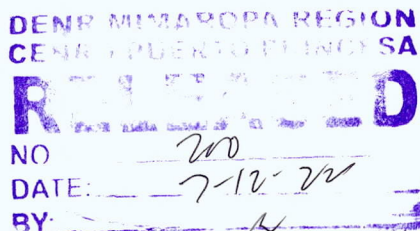 DENR MIMAROPA REGION
CENR PUERTO PRINCESA
RELEASED
NO 200
DATE: 7-12-22
BY: